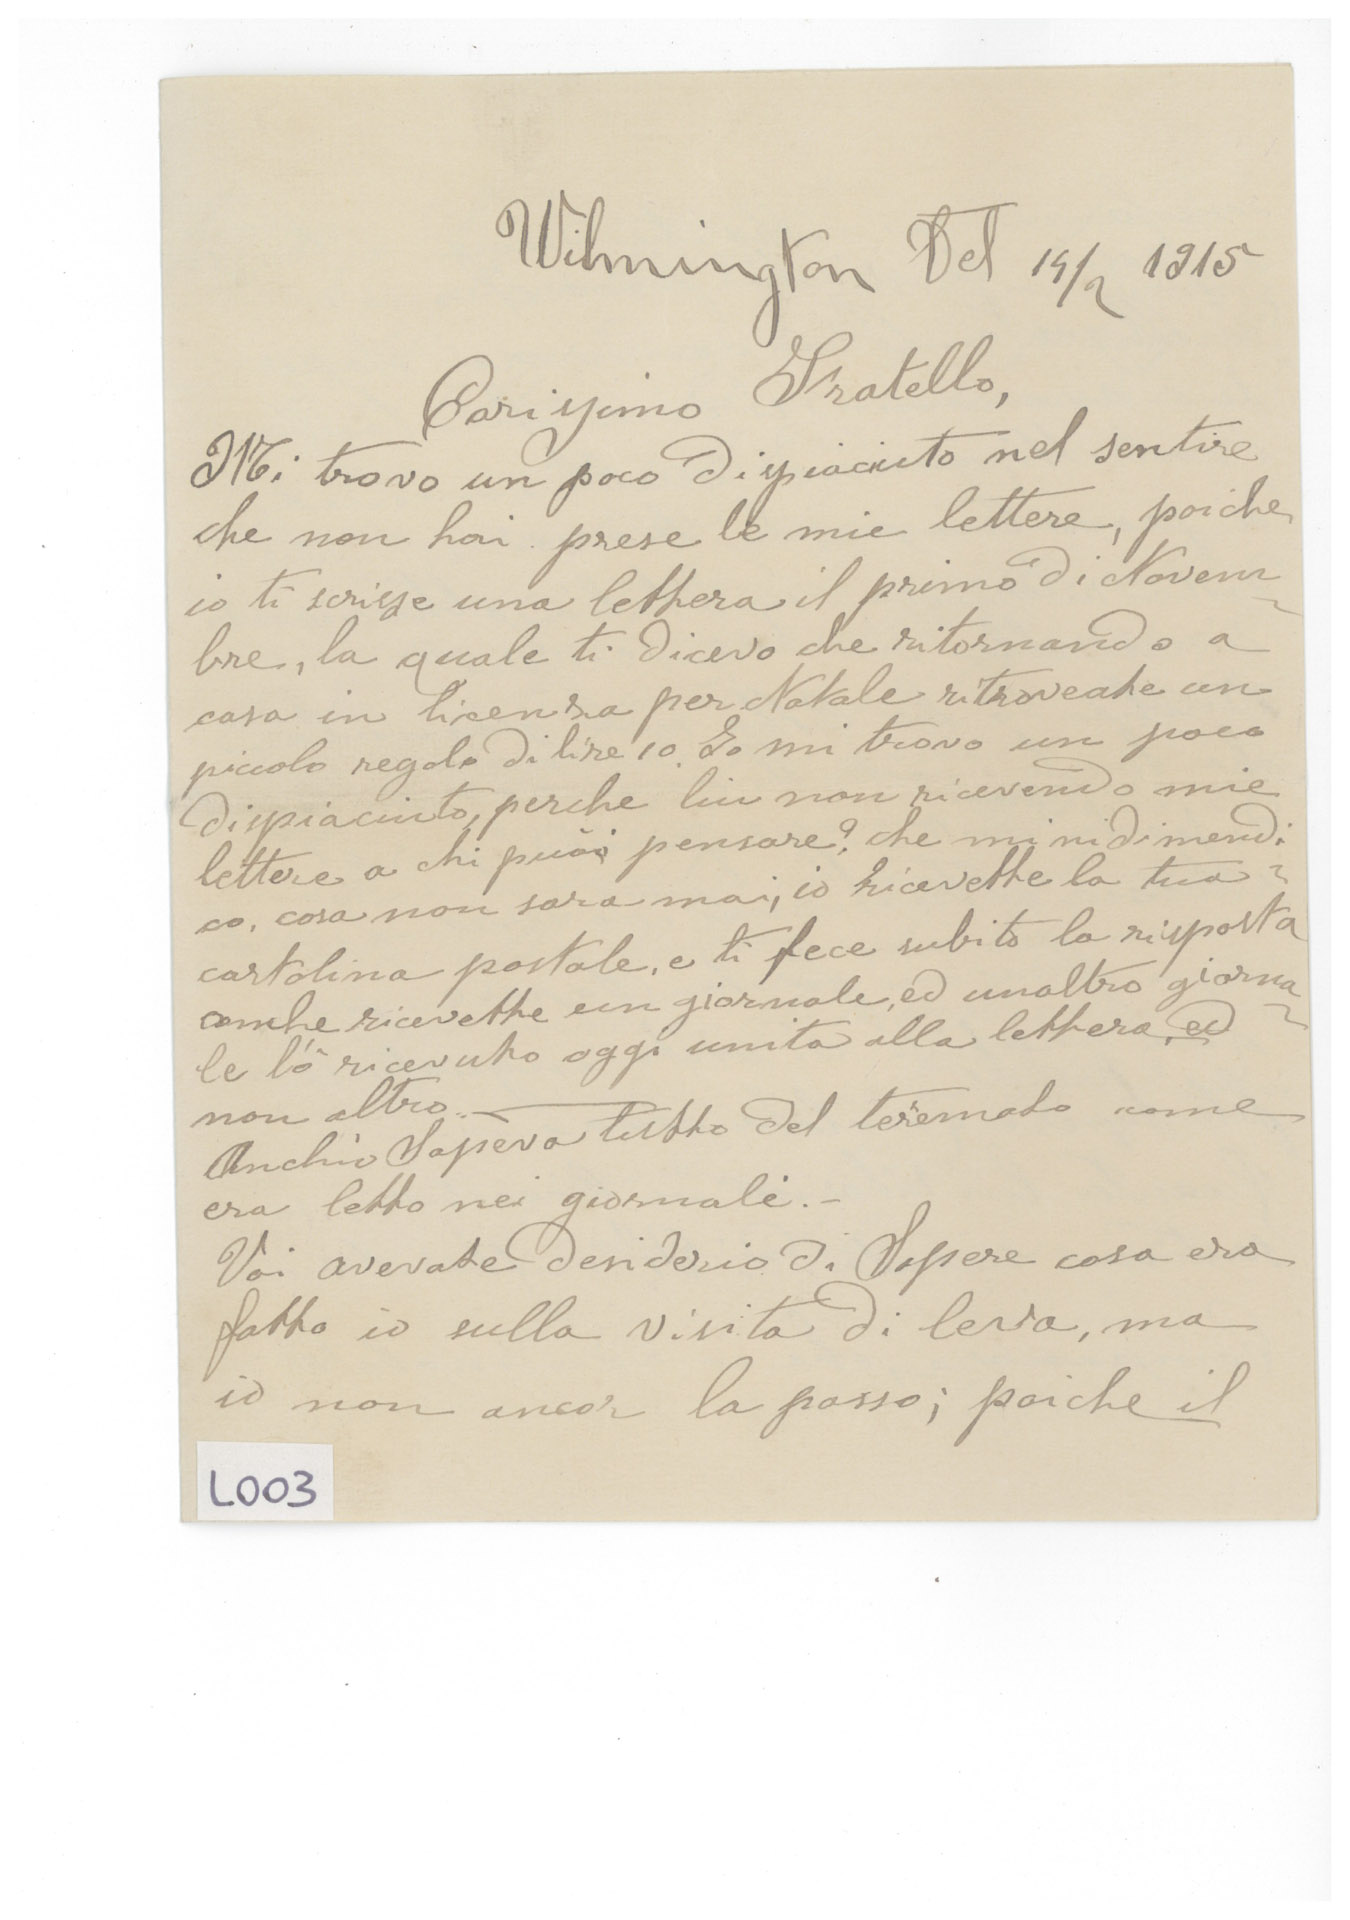 Wilmington Del 14/2 1915
Carissimo Fratello,
Mi trovo un poco dispiaciuto nel sentire
che non hai prese le mie lettere, poiche
io ti scrisse una lettera il primo di Novem
bre, la quale ti dicevo che ritornando a
casa in licenza per Natale ritroveate un
piccolo regalo di lire 10. Io mi trovo un poco
dispiaciuto, perche lui non ricevendo mie
lettere a chi puoi pensare? che mi ni dimendi
co, cosa non sara mai, io ricevette la tua
cartolina postale, e ti fece subito la risposta
anche ricevette un giornale, ed unaltro giorna
le l'ò ricevuto oggi unita alla lettera, ed
non altro. —
Anchio Sapeva tutto del teremoto come
era letto nei giornali. -
Voi avevate desiderio di Sapere cosa era
fatto io sulla visita di leva, ma
io non ancor la passo; poiche il
L003